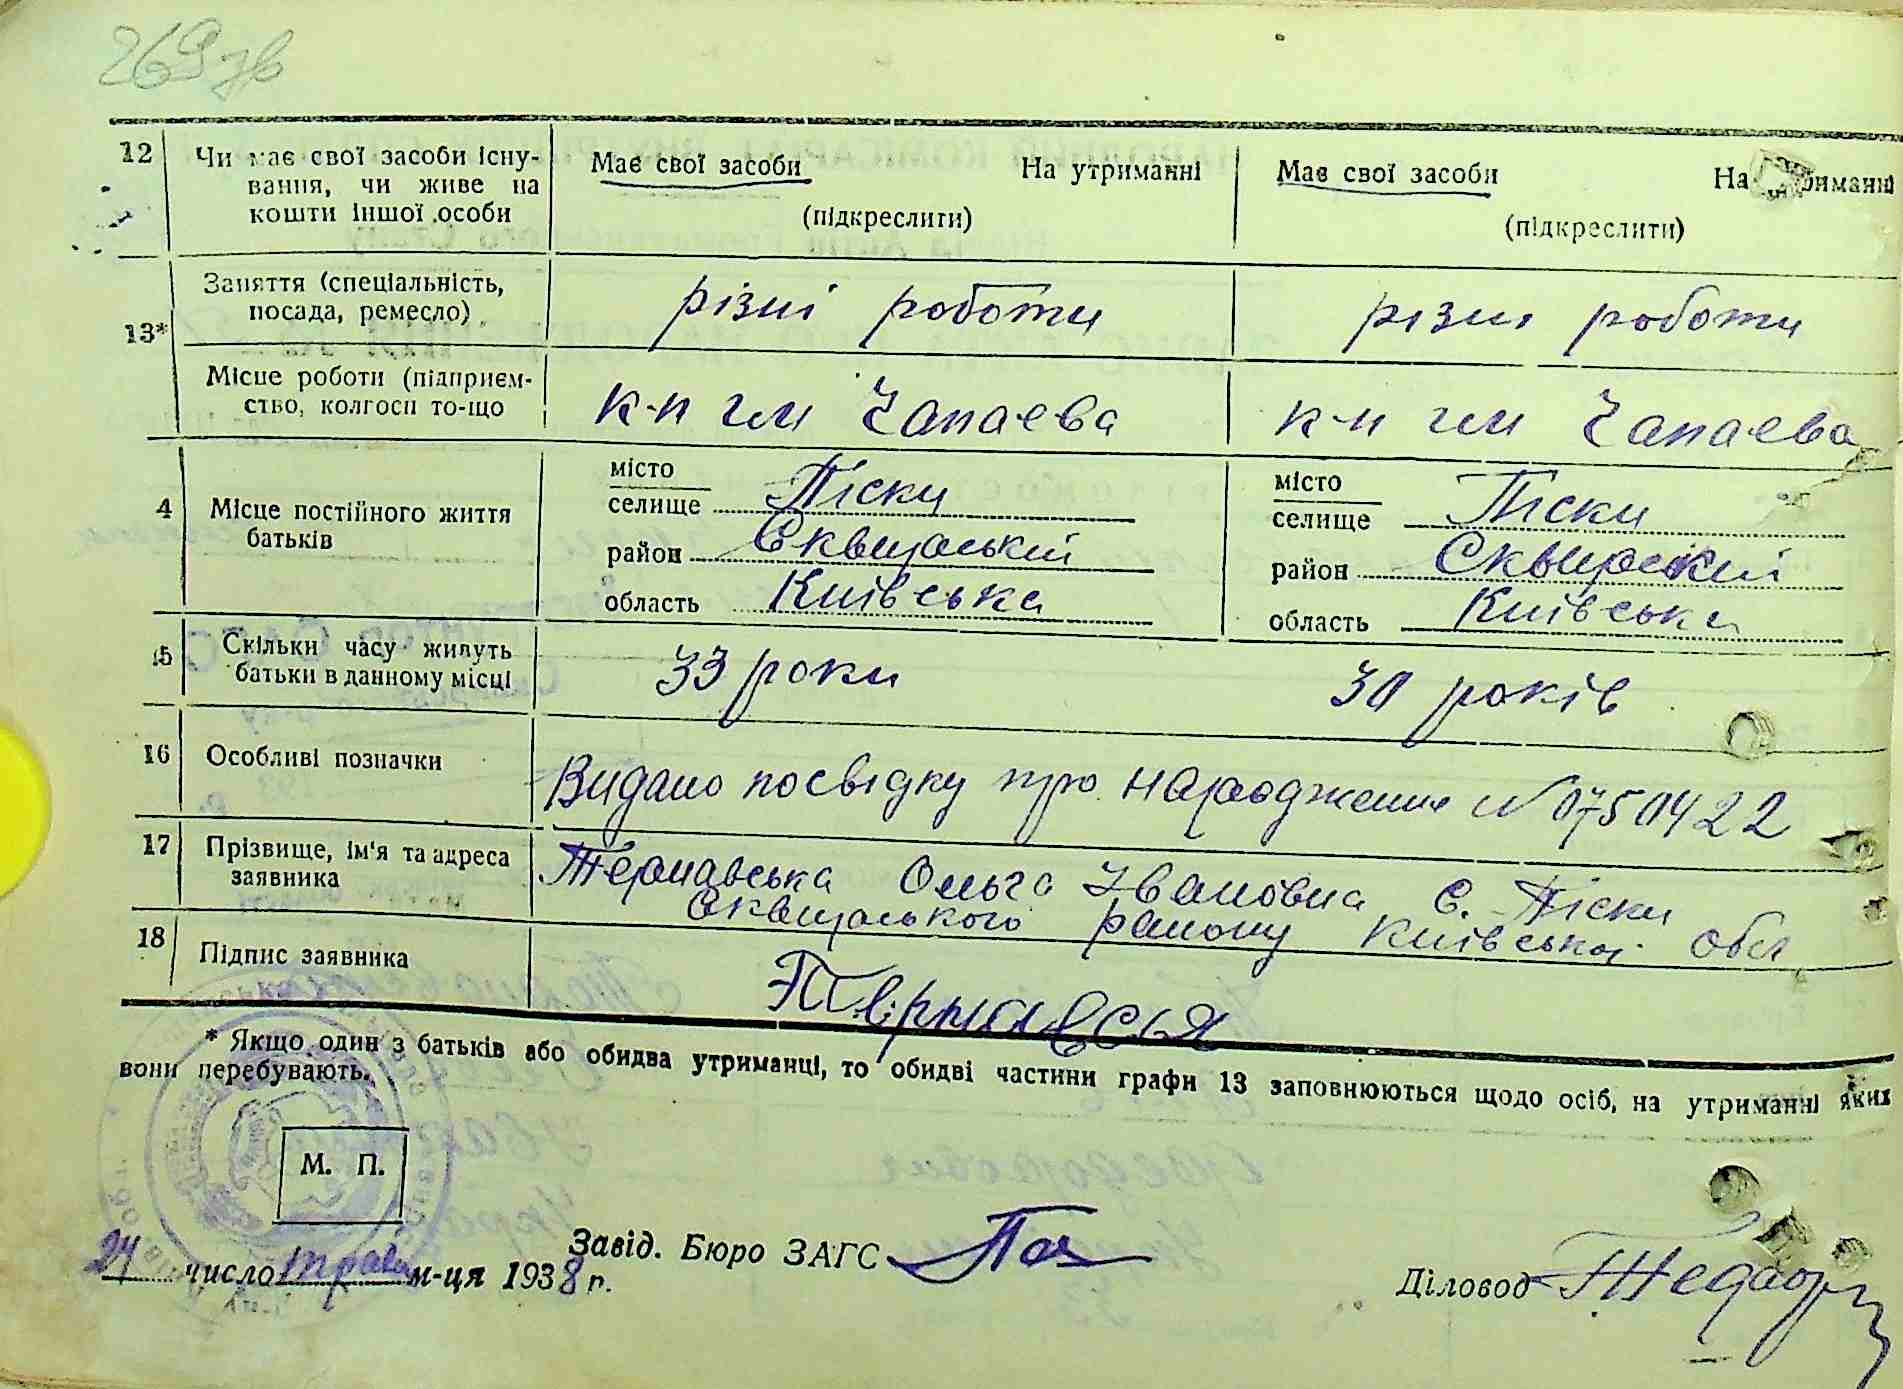 269 зв
12 Чи має свої засоби існу-
вання, чи живе на
кошти іншої особи
Має свої засоби На утриманні
(підкреслити)
Має свої засоби На утриманні
(підкреслити)
13* Заняття (спеціальність,
посада, ремесло)
різні роботи
різні роботи
Місце роботи (підприєм-
ство, колгосп то-що
к-п ім Чапаева
к-п ім Чапаева
4 Місце постійного життя
батьків
місто
селище Піски
район Сквирський
область Київська
місто
селище Піски
район Сквирский
область Київська
15 Скільки часу живуть
батьки в данному місці
33 роки
30 років
16 Особливі позначки
Видано посвідку про народження № 0750422
17 Прізвище, ім'я та адреса
заявника
Тернавська Ольга Івановна с. Піски
Сквирського району Київської обл
18 Підпис заявника
* Якщо один з батьків або обидва утриманці, то обидві частини графи 13 заповнюються щодо осіб, на утриманні яких
вони перебувають.
М. П.
24 число трав м-ця 1938 р.
Завід. Бюро ЗАГС
Діловод